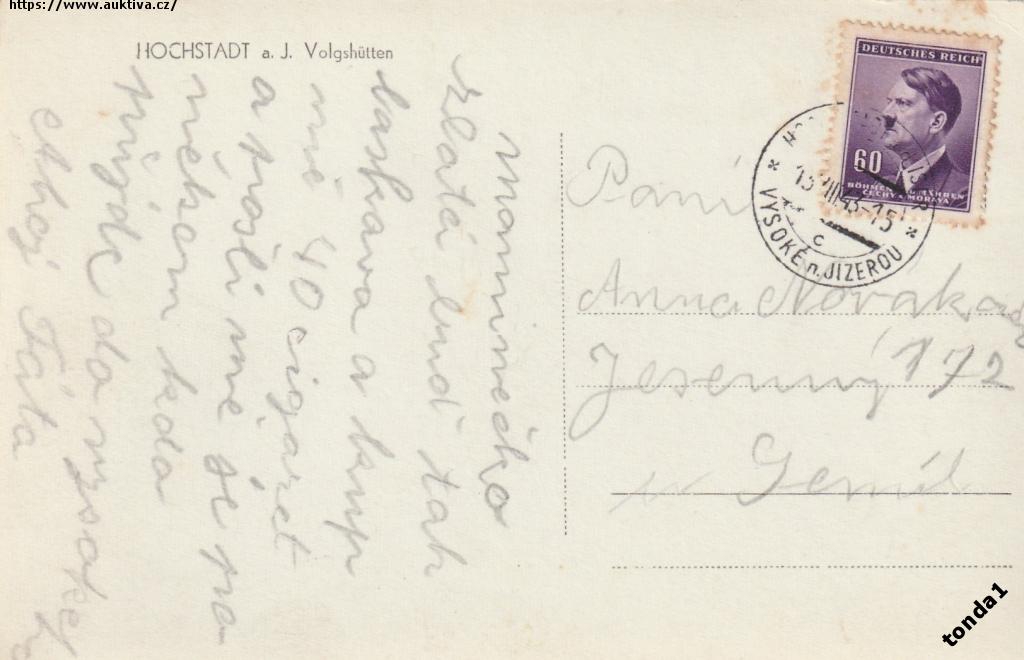 https://www.auktiva.cz/
HOCHSTADT a. J. Volgshütten
maminečko
zlatá buď tak
laskava a kup
mě 40 cigaret
a pošli mě je po
někem kdo
přijde do
Ahoj Táta
DEUTSCHES REICH
60
BÖHMEN UND MÄHREN
ČECHY A MORAVA
VYSOKÉ n. JIZEROU
c
Paní
Anna Nováková
Jesenný 172
u Semil
tonda1